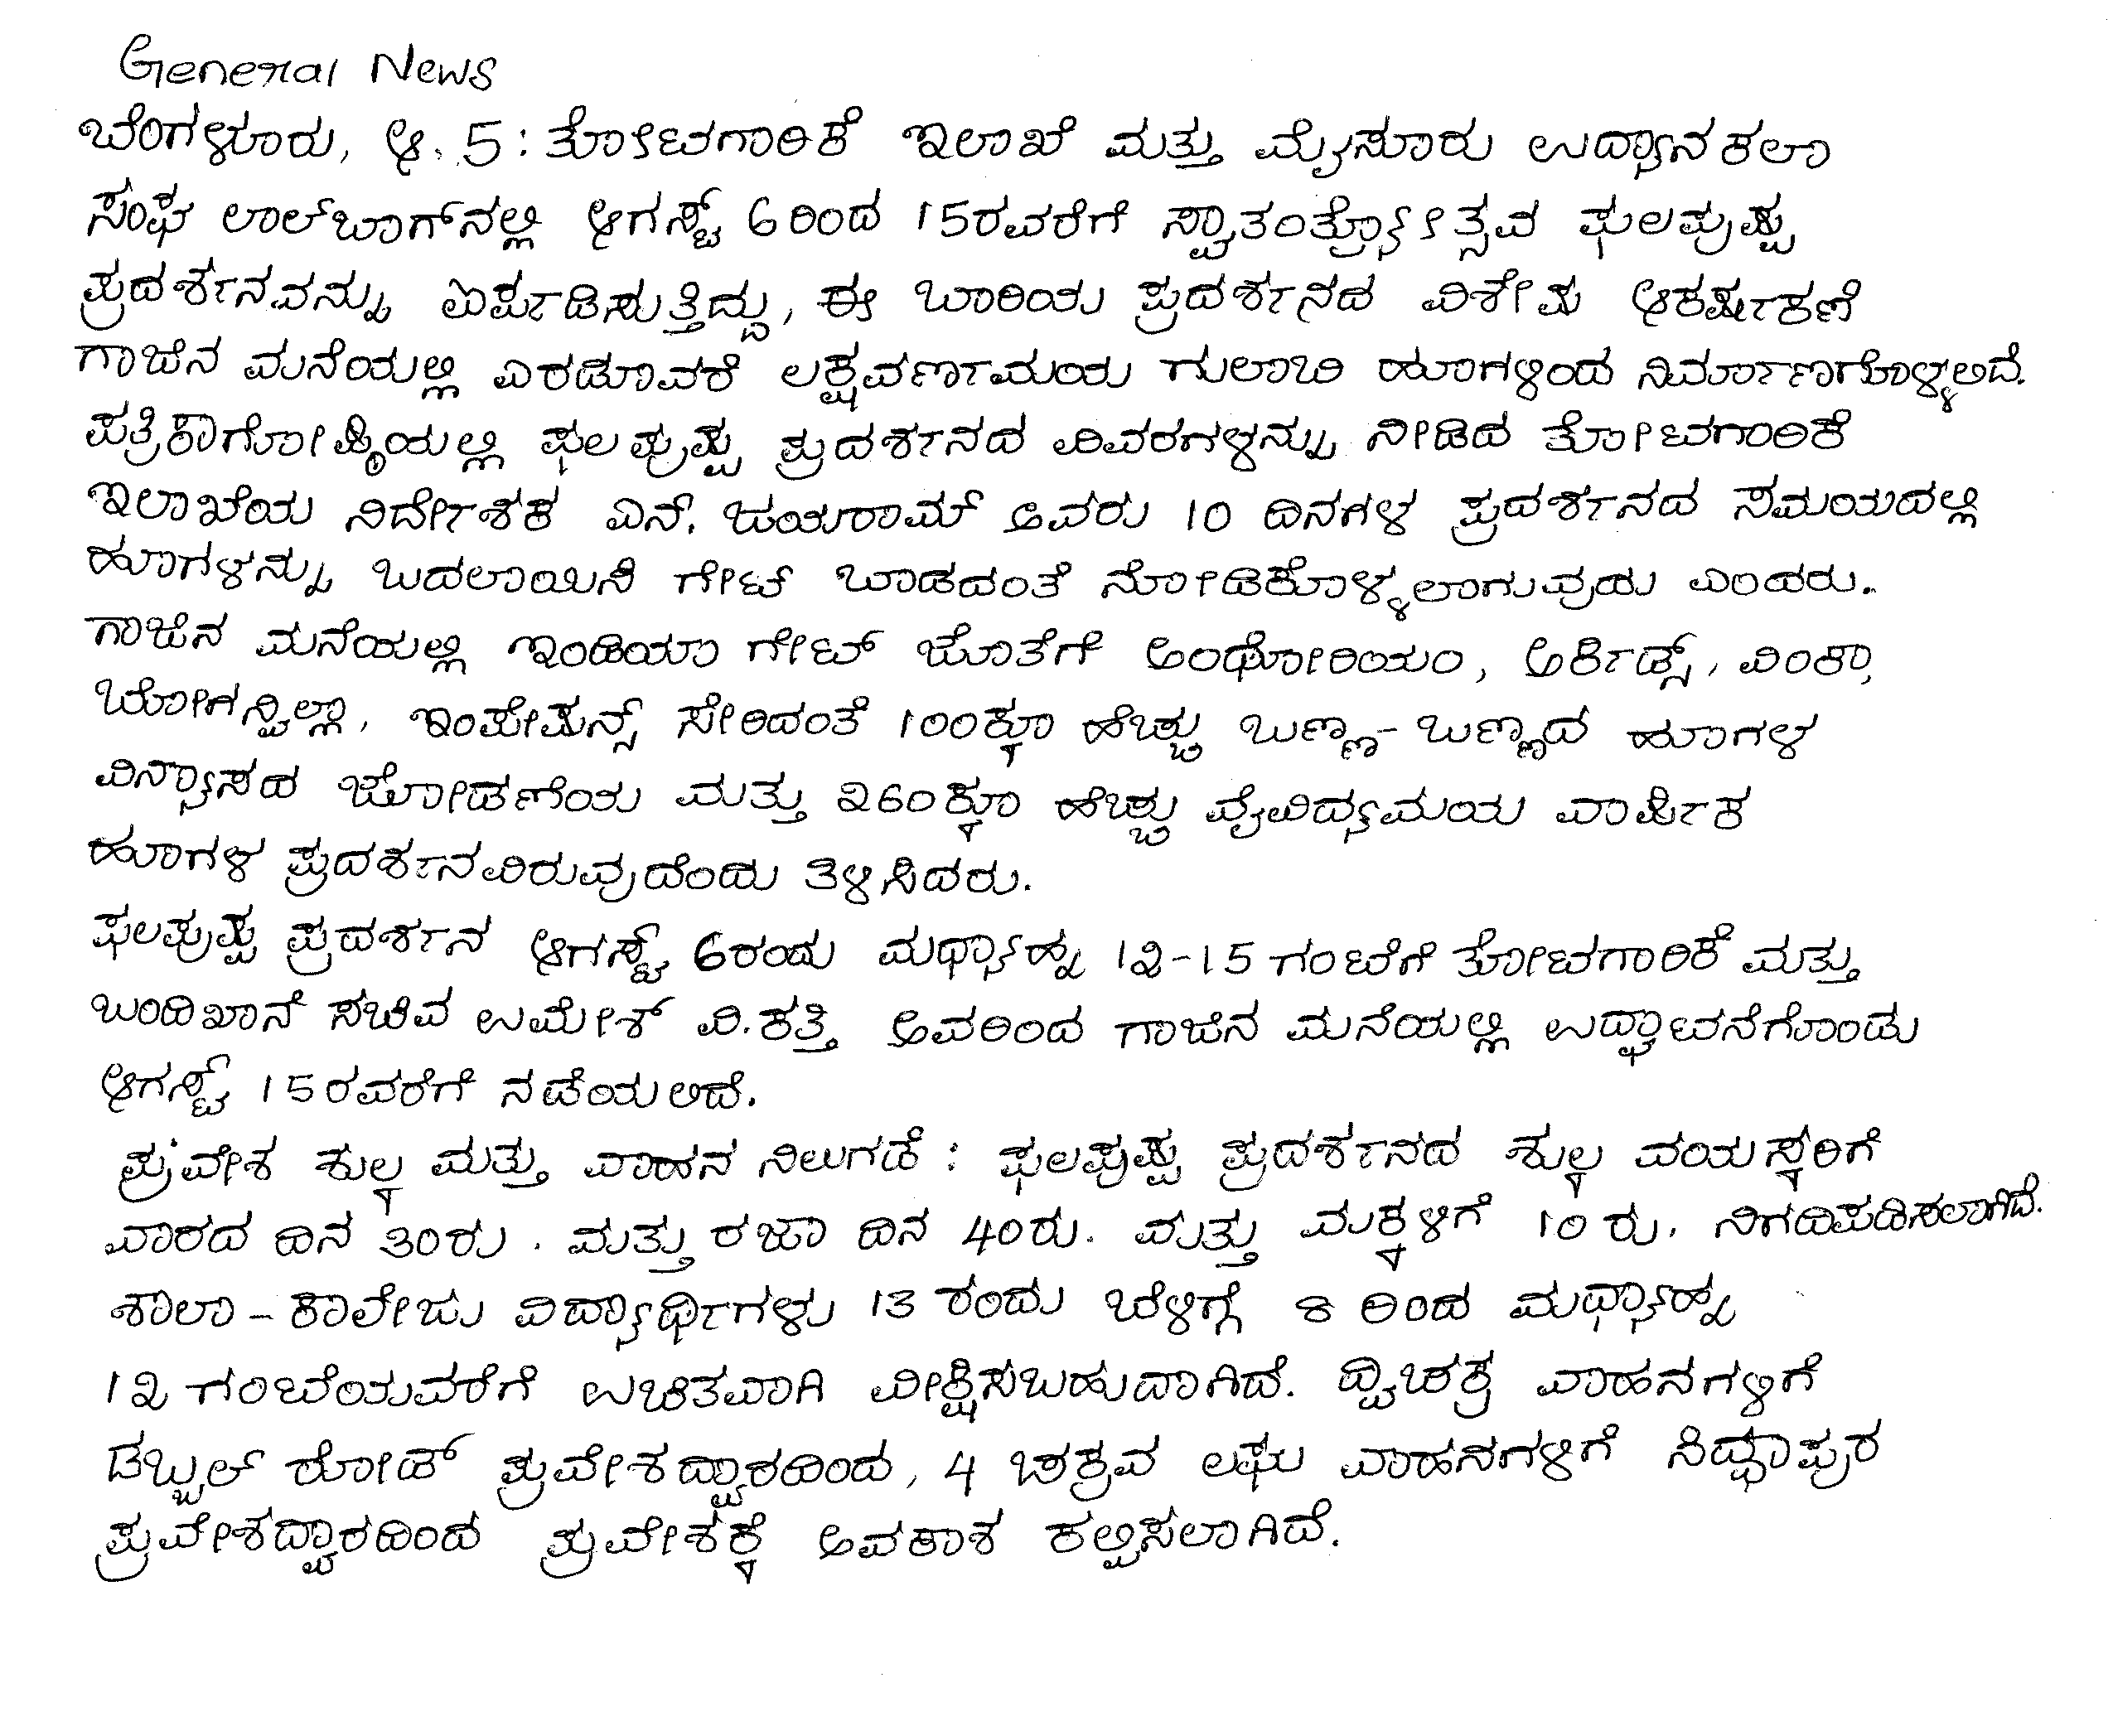 General News
ಬೆಂಗಳೂರು, ಆ. 5: ತೋಟಗಾರಿಕೆ ಇಲಾಖೆ ಮತ್ತು ಮೈಸೂರು ಉದ್ಯಾನಕಲಾ
ಸಂಘ ಲಾಲ್‌ಬಾಗ್‌ನಲ್ಲಿ ಆಗಸ್ಟ್ 6ರಿಂದ 15ರವರೆಗೆ ಸ್ವಾತಂತ್ರ್ಯೋತ್ಸವ ಫಲಪುಷ್ಪ
ಪ್ರದರ್ಶನವನ್ನು ಏರ್ಪಡಿಸುತ್ತಿದ್ದು, ಈ ಬಾರಿಯ ಪ್ರದರ್ಶನದ ವಿಶೇಷ ಆಕರ್ಷಕಣೆ
ಗಾಜಿನ ಮನೆಯಲ್ಲಿ ಎರಡೂವರೆ ಲಕ್ಷವರ್ಣಮಯ ಗುಲಾಬಿ ಹೂಗಳಿಂದ ನಿರ್ಮಾಣಗೊಳ್ಳಲಿದೆ.
ಪತ್ರಿಕಾಗೋಷ್ಠಿಯಲ್ಲಿ ಫಲಪುಷ್ಪ ಪ್ರದರ್ಶನದ ವಿವರಗಳನ್ನು ನೀಡಿದ ತೋಟಗಾರಿಕೆ
ಇಲಾಖೆಯ ನಿರ್ದೇಶಕ ಎನ್. ಜಯರಾಮ್ ಅವರು 10 ದಿನಗಳ ಪ್ರದರ್ಶನದ ಸಮಯದಲ್ಲಿ
ಹೂಗಳನ್ನು ಬದಲಾಯಿಸಿ ಗೇಟ್ ಬಾಡದಂತೆ ನೋಡಿಕೊಳ್ಳಲಾಗುವುದು ಎಂದರು.
ಗಾಜಿನ ಮನೆಯಲ್ಲಿ ಇಂಡಿಯಾ ಗೇಟ್ ಜೊತೆಗೆ ಅಂಥೋರಿಯಂ, ಅರ್ಕಿಡ್ಸ್, ವಿಂಕಾ,
ಬೋಗನ್ವಿಲ್ಲಾ, ಇಂಪೇಷನ್ಸ್ ಸೇರಿದಂತೆ 100ಕ್ಕೂ ಹೆಚ್ಚು ಬಣ್ಣ-ಬಣ್ಣದ ಹೂಗಳ
ವಿನ್ಯಾಸದ ಜೋಡಣೆಯ ಮತ್ತು 260ಕ್ಕೂ ಹೆಚ್ಚು ವೈವಿದ್ಯಮಯ ವಾರ್ಷಿಕ
ಹೂಗಳ ಪ್ರದರ್ಶನವಿರುವುದೆಂದು ತಿಳಿಸಿದರು.
ಫಲಪುಷ್ಪ ಪ್ರದರ್ಶನ ಆಗಸ್ಟ್ 6ರಂದು ಮಧ್ಯಾಹ್ನ 12-15 ಗಂಟೆಗೆ ತೋಟಗಾರಿಕೆ ಮತ್ತು
ಬಂದಿಖಾನೆ ಸಚಿವ ಉಮೇಶ್ ವಿ.ಕತ್ತಿ ಅವರಿಂದ ಗಾಜಿನ ಮನೆಯಲ್ಲಿ ಉದ್ಘಾಟನೆಗೊಂಡು
ಆಗಸ್ಟ್ 15ರವರೆಗೆ ನಡೆಯಲಿದೆ.
ಪ್ರವೇಶ ಶುಲ್ಕ ಮತ್ತು ವಾಹನ ನಿಲುಗಡೆ : ಫಲಪುಷ್ಪ ಪ್ರದರ್ಶನದ ಶುಲ್ಕ ವಯಸ್ಕರಿಗೆ
ವಾರದ ದಿನ 30ರು. ಮತ್ತು ರಜಾ ದಿನ 40ರು. ಮತ್ತು ಮಕ್ಕಳಿಗೆ 10 ರು. ನಿಗದಿಪಡಿಸಲಾಗಿದೆ.
ಶಾಲಾ-ಕಾಲೇಜು ವಿದ್ಯಾರ್ಥಿಗಳು 13 ರಂದು ಬೆಳಿಗ್ಗೆ 8 ರಿಂದ ಮಧ್ಯಾಹ್ನ
12 ಗಂಟೆಯವರೆಗೆ ಉಚಿತವಾಗಿ ವೀಕ್ಷಿಸಬಹುದಾಗಿದೆ. ದ್ವಿಚಕ್ರ ವಾಹನಗಳಿಗೆ
ಡಬ್ಬಲ್ ರೋಡ್ ಪ್ರವೇಶದ್ವಾರದಿಂದ, 4 ಚಕ್ರವ ಲಘು ವಾಹನಗಳಿಗೆ ಸಿದ್ಧಾಪುರ
ಪ್ರವೇಶದ್ವಾರದಿಂದ ಪ್ರವೇಶಕ್ಕೆ ಅವಕಾಶ ಕಲ್ಪಿಸಲಾಗಿದೆ.